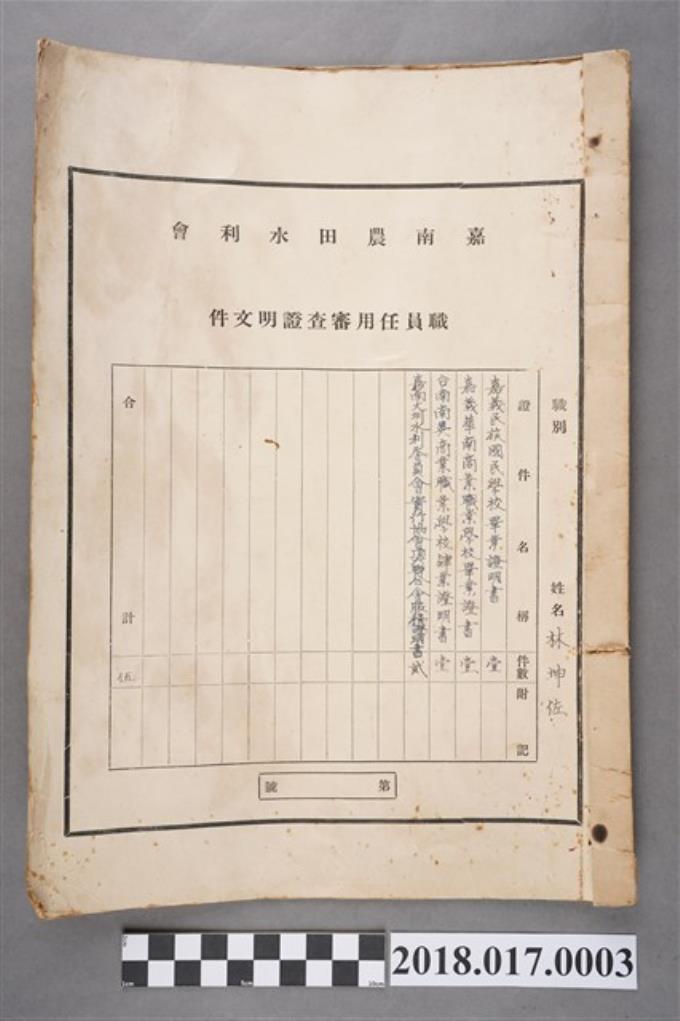 嘉南農田水利會
職員任用審查證明文件
職別
姓名 林坤佐
證件名稱 件數 附記
嘉義民族國民學校畢業證明書 壹
嘉義華南商業職業學校畢業證書 壹
台南南英商業職業學校肄業證明書 壹
嘉南大圳水利委員會 證明書 貳
合計 伍
第 號
2018.017.0003